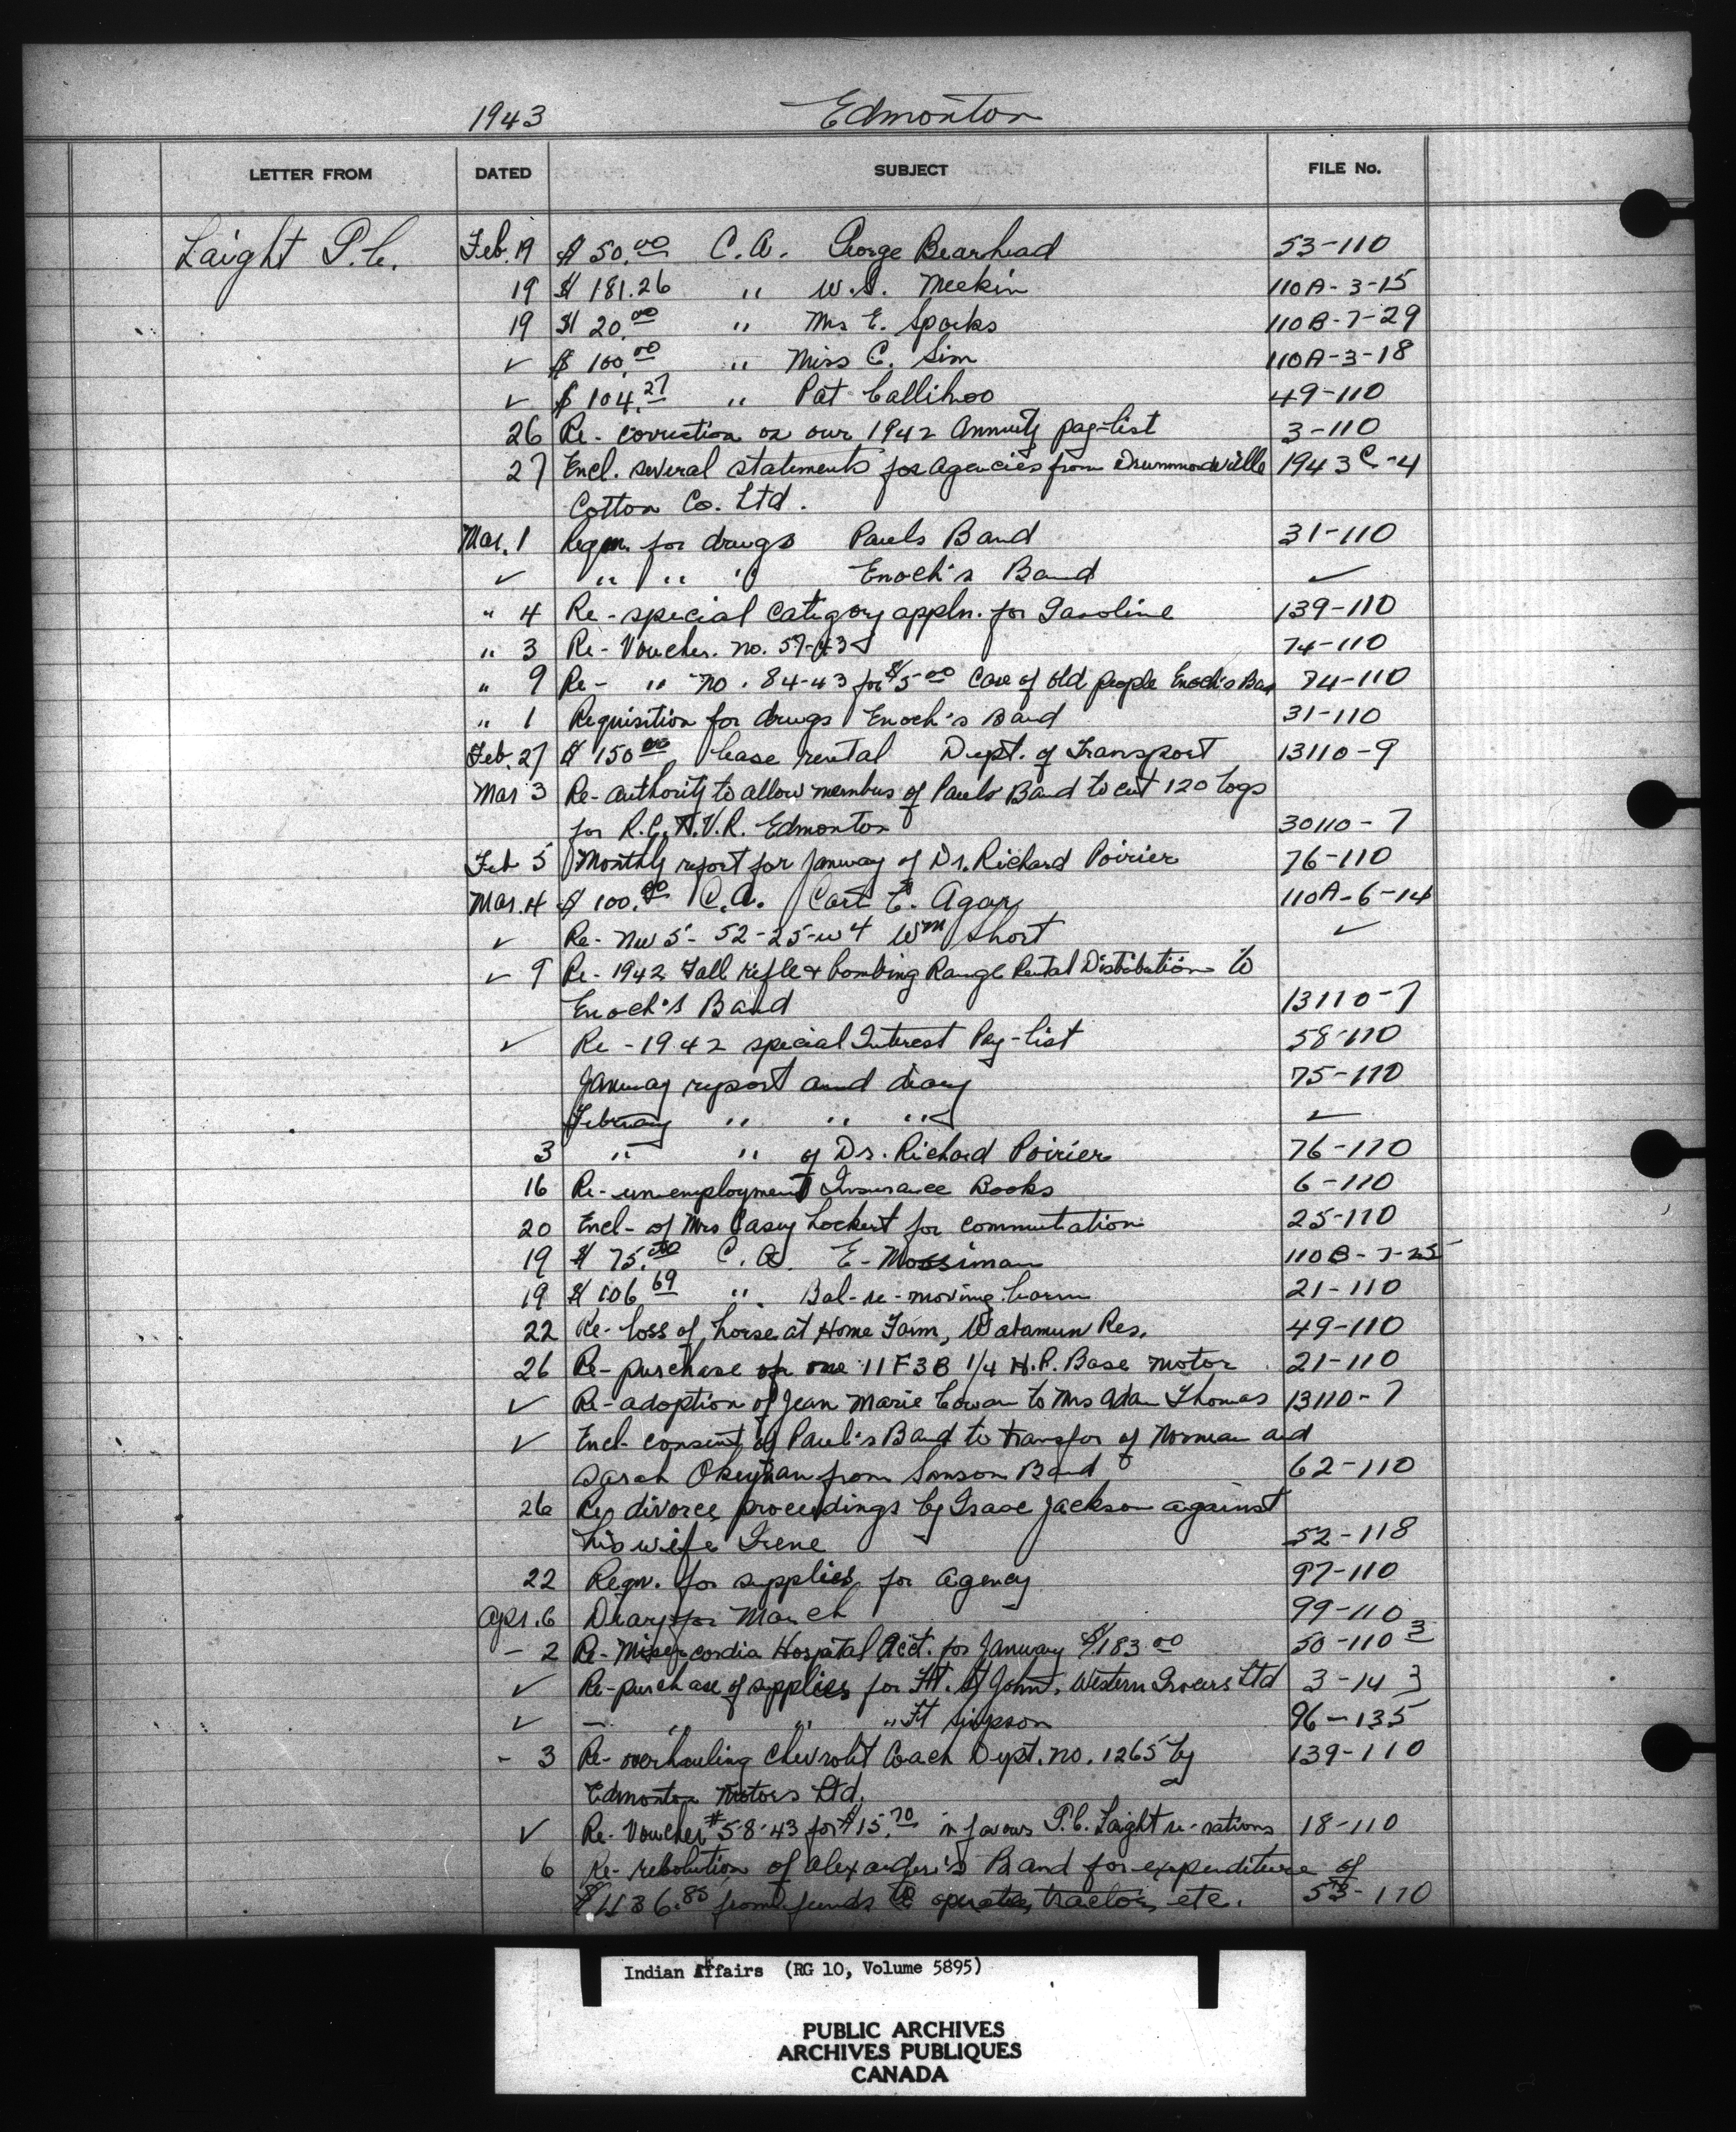 1943 Edmonton
LETTER FROM DATED SUBJECT FILE No.
Laight P.C. Feb. 19 $ 50.00 C.A. George Bearhead 53-110
19 $ 181.26 " W.S. Meekin 110A-3-15
19 $ 20.00 " Mrs E. Sparks 110B-7-29
✓ $ 100.00 " Miss C. Sim 110A-3-18
✓ $ 104.27 " Pat Callihoo 49-110
26 Re- correction on our 1942 Annuity pay-list 3-110
27 Encl. several statements for agencies from Drummondville 1943 C-4
Cotton Co. Ltd.
Mar. 1 Reqn. for drugs Pauls Band 31-110
✓ " " " Enoch's Band ✓
" 4 Re- special category appln. for Gasoline 139-110
" 3 Re- Voucher. no. 57-43 74-110
" 9 Re- " no. 84-43 for $5.00 Care of old people Enoch's Ban 74-110
" 1 Requisition for drugs Enoch's Band 31-110
Feb. 27 $ 150.00 lease rental Dept. of Transport 13110-9
Mar 3 Re- authority to allow members of Pauls Band to cut 120 logs
for R.C.N.V.R. Edmonton 30110-7
Feb 5 Monthly report for January of Dr. Richard Poirier 76-110
Mar. 4 $ 100.00 C.A. Carl E. Agar 110A-6-14
✓ Re- NW 5- 52-25-W4 Wm Short ✓
✓ 9 Re- 1942 Fall rifle & bombing Range Rental Distribution to
Enoch's Band 13110-7
✓ Re - 1942 special Interest Pay-list 58-110
January report and diary 75-110
February " " " ✓
3 " " of Dr. Richard Poirier 76-110
16 Re- unemployment Insurance Books 6-110
20 Encl- of Mrs Casey Lockert for commutation 25-110
19 $ 75.00 C.A. E- Mossiman 110B-7-25
19 $ 106.69 ". Bal- re- moving barn 21-110
22 Re- loss of horse at Home Farm, Wabamun Res. 49-110
26 Re- purchase of one 11F3B 1/4 H.P. Base motor 21-110
✓ Re- adoption of Jean Marie Cowan to Mrs Adam Thomas 13110-7
✓ Encl- consent of Paul's Band to transfer of Norman and
Sarah from Samson Band 62-110
26 Re divorce proceedings by Isaac Jackson against
his wife Irene 52-118
22 Reqn. for supplies for agency 97-110
Apr. 6 Diary for March 99-110
- 2 Re- Misericordia Hospital Acct. for January $183.00 50-110 3
✓ Re- purchase of supplies for Ft. St John, Western Grocers Ltd 3-143
✓ - " " " Ft Simpson 96-135
- 3 Re- overhauling Chevrolet Coach Dept. no. 1265 by 139-110
Edmonton Motors Ltd.
✓ Re- Voucher #58-43 for $15.70 in favour P.C. Laight re- rations 18-110
6 Re- resolution of Alexander's Band for expenditure of
$436.85 from funds to operate tractor, etc. 53-110
Indian Affairs (RG 10, Volume 5895)
PUBLIC ARCHIVES
ARCHIVES PUBLIQUES
CANADA